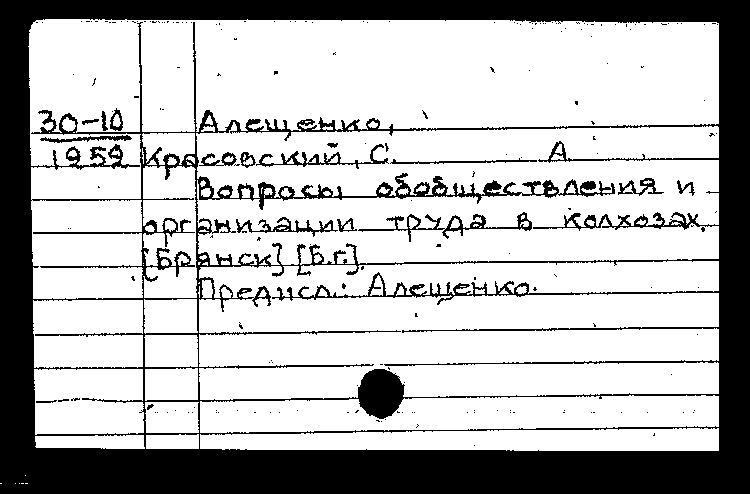 30-10 Алещенко,
1959 Красовский, С. А
Вопросы обобществления и
организации труда в колхозах.
[Брянск] [Б.г.].
Предисл.: Алещенко.